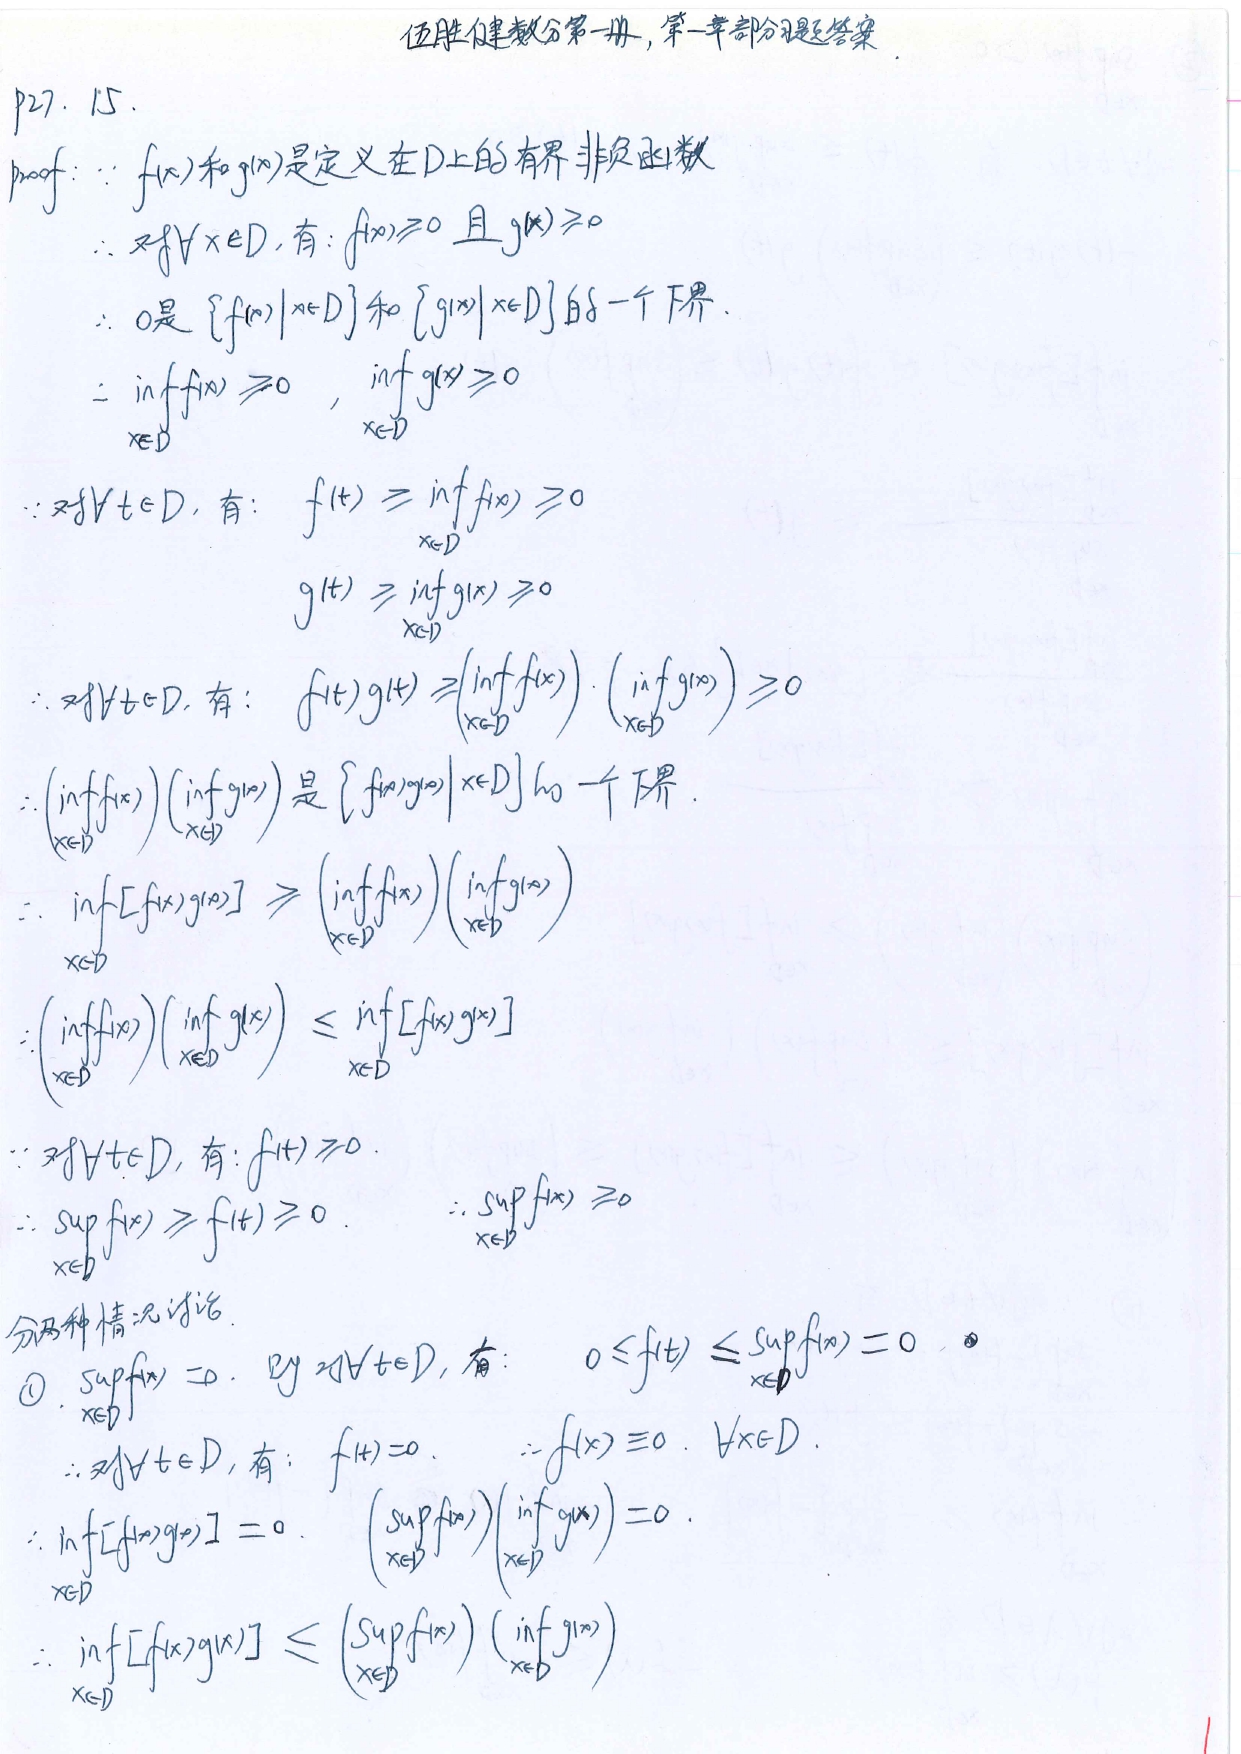 伍胜健数分第一册，第一章部分习题答案
P27. 15.
proof: ∵ f(x)和g(x)是定义在D上的有界非负函数
∴ 对∀x∈D, 有: f(x)≥0 且 g(x)≥0
∴ 0是{f(x)|x∈D}和{g(x)|x∈D}的一个下界.
∴ inf_{x∈D} f(x) ≥0 , inf_{x∈D} g(x) ≥0
∵ 对∀t∈D, 有: f(t) ≥ inf_{x∈D} f(x) ≥0
g(t) ≥ inf_{x∈D} g(x) ≥0
∴ 对∀t∈D, 有: f(t)g(t) ≥ (inf_{x∈D} f(x))·(inf_{x∈D} g(x)) ≥0
∴ (inf_{x∈D} f(x))(inf_{x∈D} g(x)) 是{f(x)g(x)|x∈D}的一个下界.
∴ inf_{x∈D} [f(x)g(x)] ≥ (inf_{x∈D} f(x))(inf_{x∈D} g(x))
∴ (inf_{x∈D} f(x))(inf_{x∈D} g(x)) ≤ inf_{x∈D} [f(x)g(x)]
∵ 对∀t∈D, 有: f(t)≥0.
∴ sup_{x∈D} f(x) ≥ f(t) ≥0. ∴ sup_{x∈D} f(x) ≥0
分两种情况讨论.
①. sup_{x∈D} f(x) =0. 则对∀t∈D, 有: 0≤f(t) ≤ sup_{x∈D} f(x) =0.
∴ 对∀t∈D, 有: f(t)=0. ∴ f(x)≡0. ∀x∈D.
∴ inf_{x∈D} [f(x)g(x)] =0. (sup_{x∈D} f(x))(inf_{x∈D} g(x)) =0.
∴ inf_{x∈D} [f(x)g(x)] ≤ (sup_{x∈D} f(x))(inf_{x∈D} g(x))